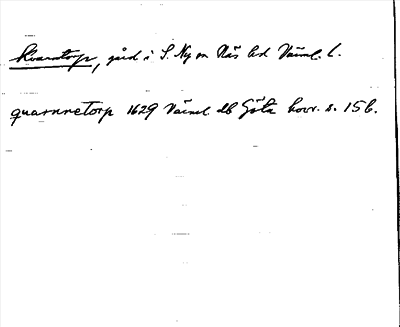 Kvarntorp, gård i S. Ny sn Näs hd Värml. l.
quarnnetorp 1629 Värml. db Göta hovr. s. 156.